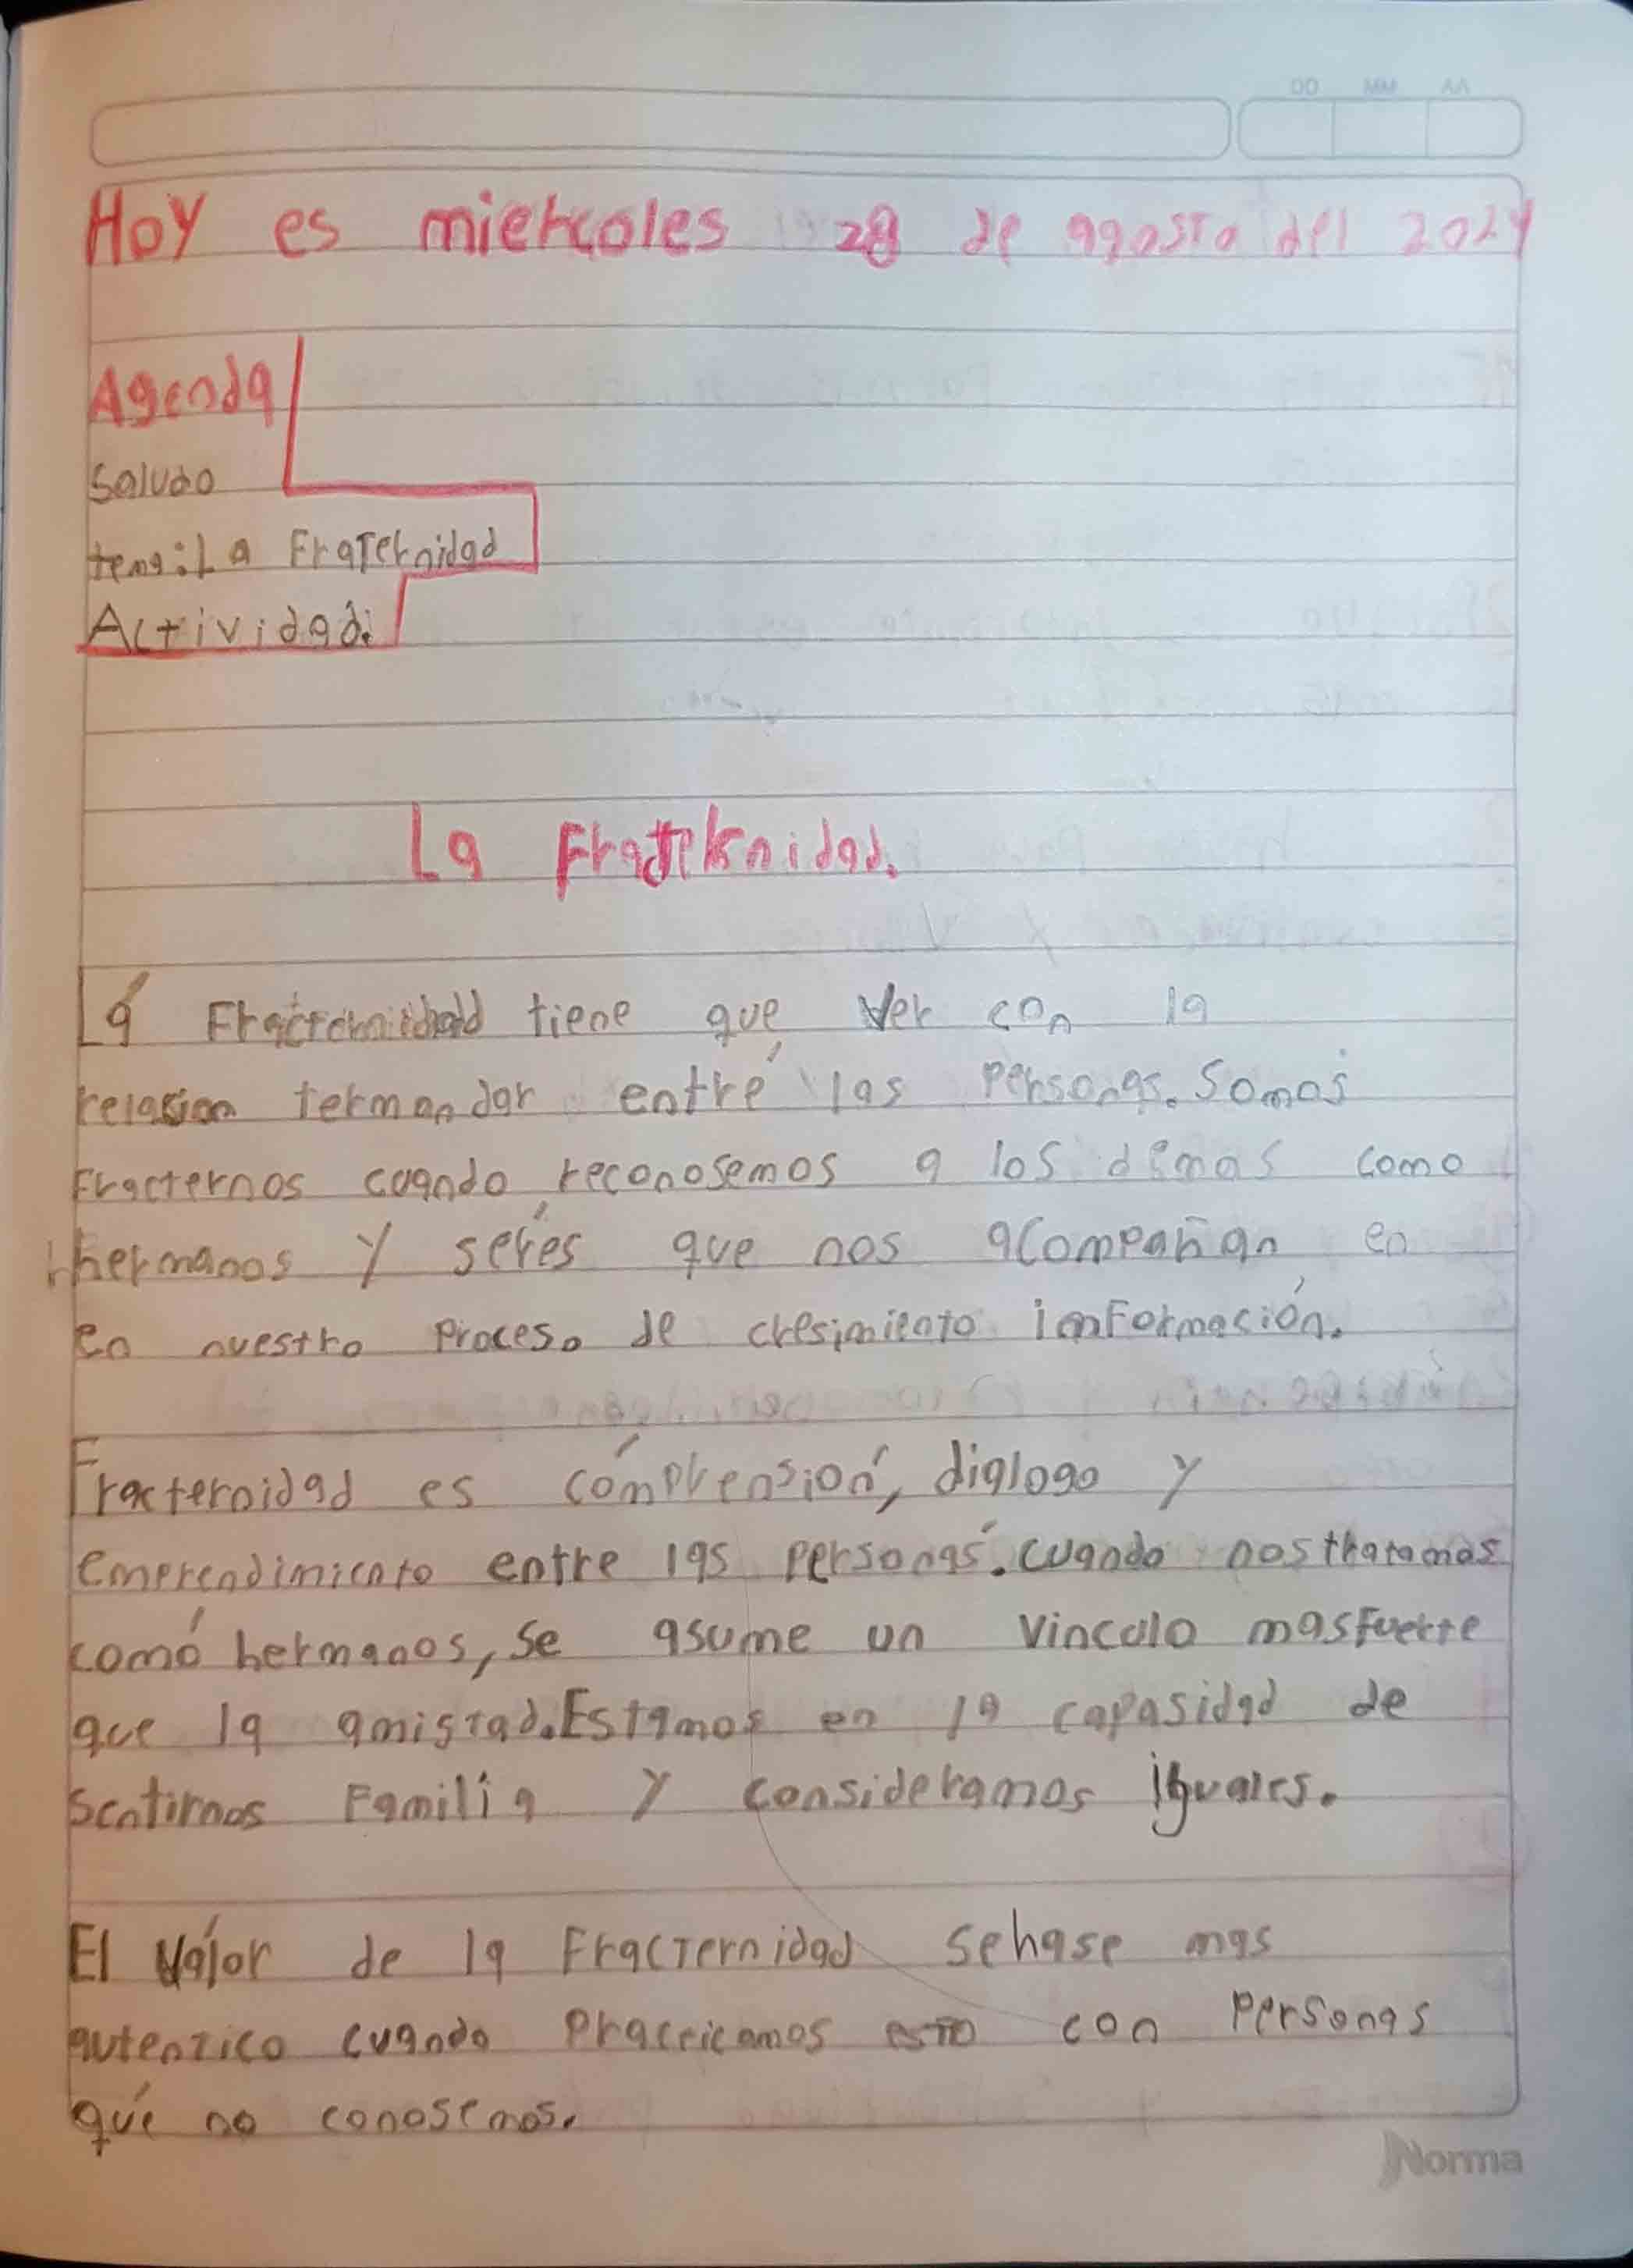 DD MM AA
Hoy es miercoles 28 de agosto del 2024
Agenda
Saludo
tema: La Fraternidad
Actividad:
La Fraternidad.
Lá Fracternidad tiene que ver con la
relasion termandar entré las personas. Somos
Fracternos cuando reconosemos a los demas como
hermanos y serés que nos acompañan en
en nuestro proceso de cresimiento información.
Fracternidad es cómprensión, dialogo y
emprendimiento entre las personás. cuando nostratamos
comó hermanos, se asume un vinculo masfuerte
que la amistad. Estamos en la capasidad de
sentirnos Familia y consideramos iguales.
El Válor de la Fracternidad sehase mas
autentico cuando practicamos esto con personas
qué no conosemos.
Norma